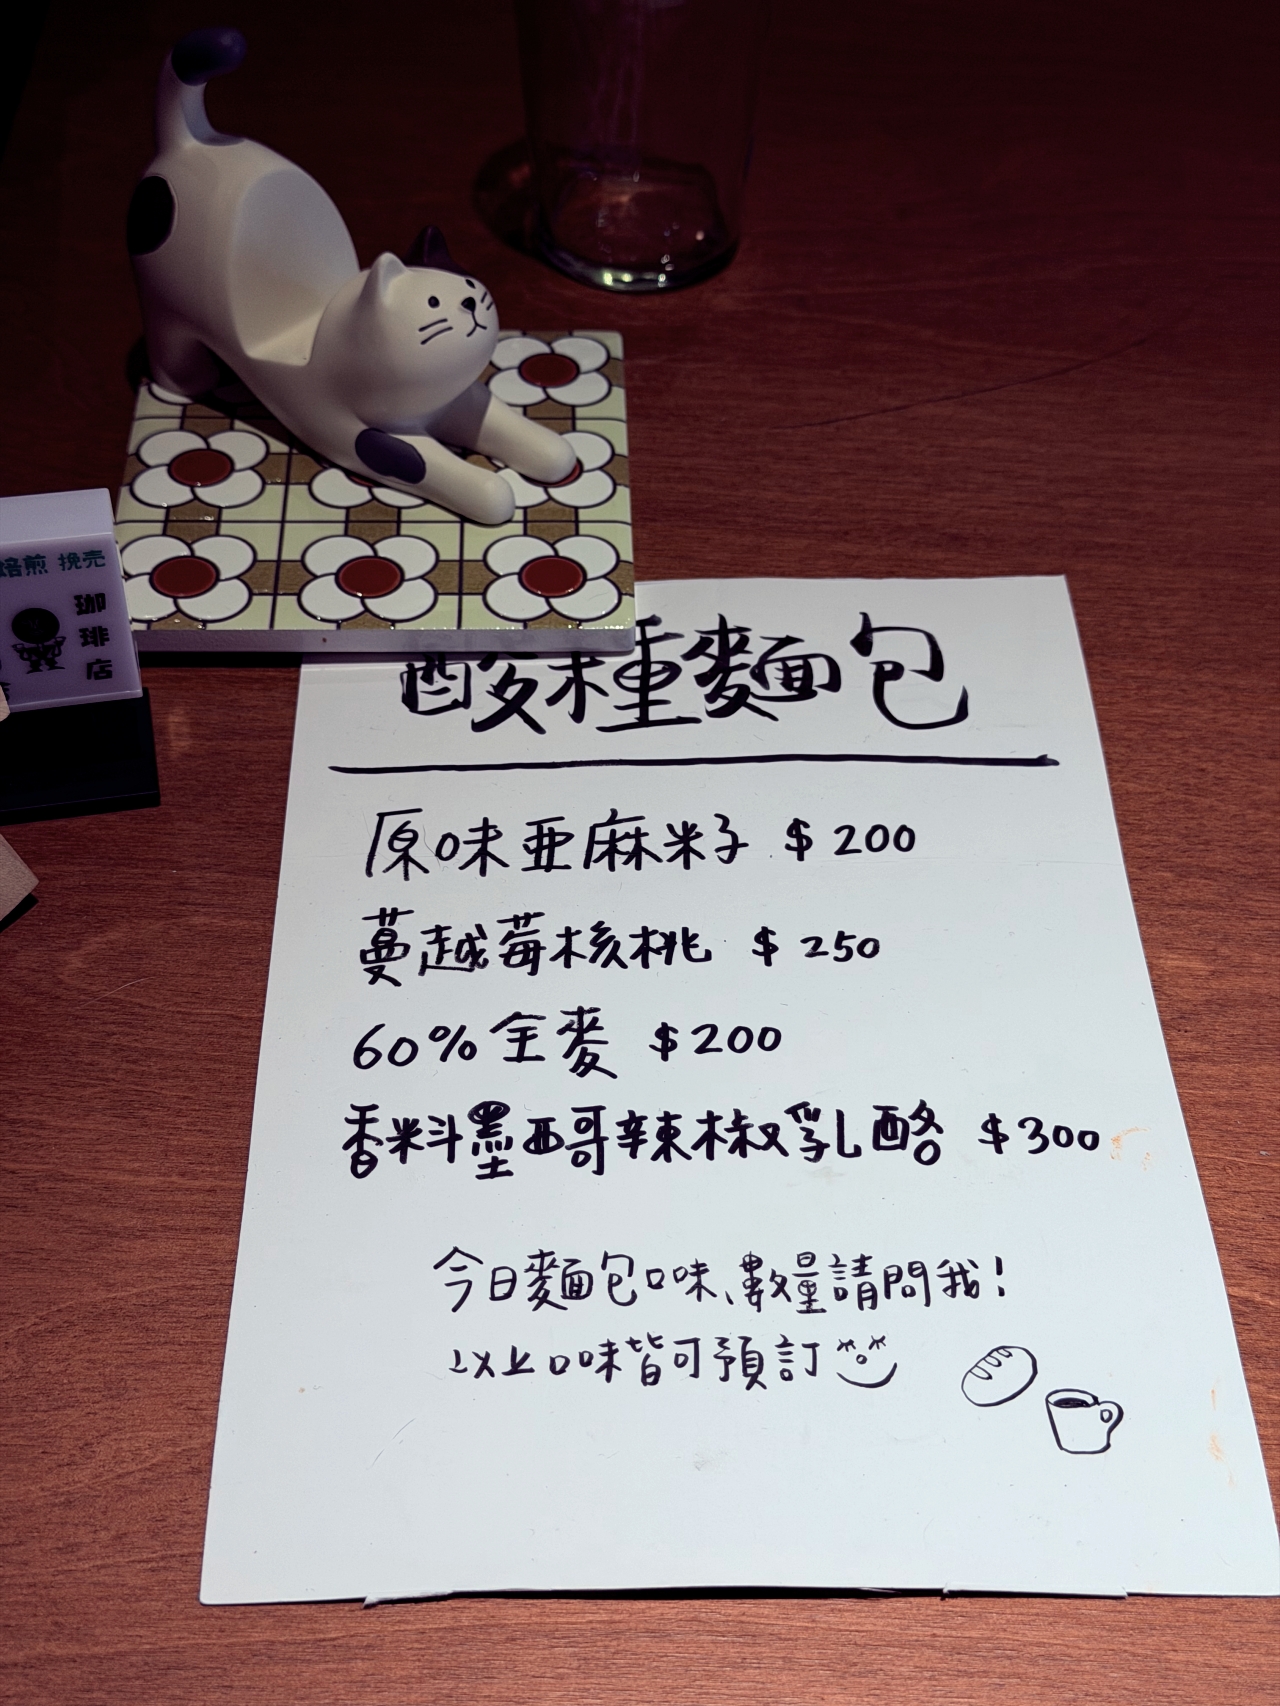 焙煎 挽売
珈琲店
酸種麵包
原味亜麻米子 $200
蔓越莓核桃 $250
60%全麥 $200
香料墨西哥辣椒乳酪 $300
今日麵包口味、數量請問我!
以上口味皆可預訂